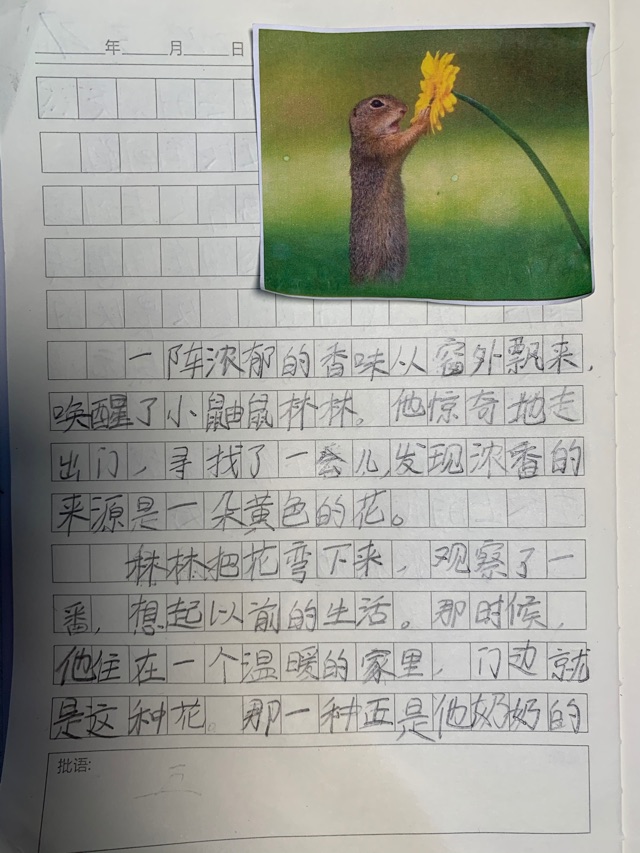 年 月 日
一阵浓郁的香味从窗外飘来，
唤醒了小鼬鼠林林。他惊奇地走
出门，寻找了一会儿，发现浓香的
来源是一朵黄色的花。
林林把花弯下来，观察了一
番，想起以前的生活。那时候，
他住在一个温暖的家里，门边就
是这种花。那一种正是他奶奶的
批语: